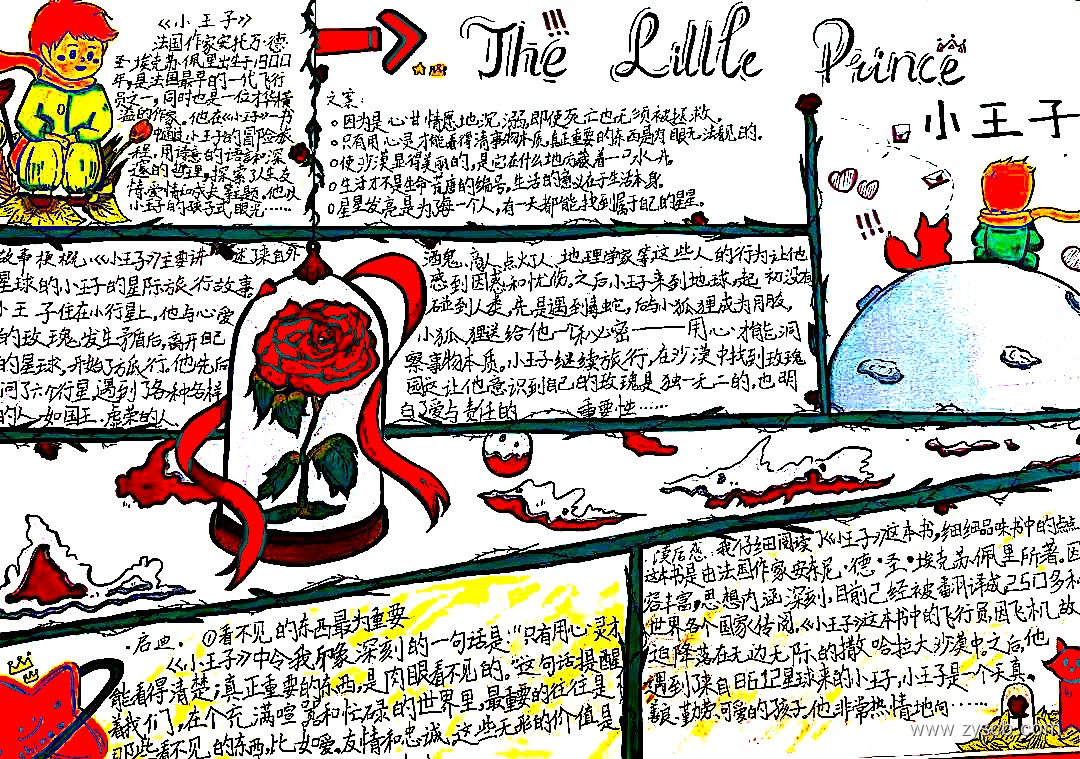 The Little Prince
小王子
《小王子》
法国作家安托万·德·
圣·埃克苏佩里出生于1900
年,是法国最早的一代飞行
员之一,同时也是一位才华横
溢的作家。他在《小王子》一书
中通过小王子的冒险旅
程,用诗意的语言和深
邃的哲理,探索了人生友
情、爱情和成长主题。他以
小王子的孩子式眼光……
文案:
因为是心甘情愿地沉溺,即使死亡也无须被拯救。
只有用心灵才能看得清事物本质,真正重要的东西是肉眼无法看见的。
使沙漠显得美丽的,是它在什么地方藏着一口水井。
生活才不是生命荒唐的编号,生活的意义在于生活本身。
星星发亮是为了让每一个人,有一天都能找到属于自己的星星。
故事梗概:《小王子》主要讲述了来自外
星球的小王子的星际旅行故事
小王子住在小行星上,他与心爱
的玫瑰发生矛盾后,离开自己
的星球,开始了旅行。他先后
访问了六个行星,遇到了各种各样
的人,如国王、虚荣的人
酒鬼、商人、点灯人、地理学家等这些人的行为让他
感到困惑和忧伤。之后小王子来到地球,起初没有
碰到人类,先是遇到毒蛇,后与小狐狸成为朋友,
小狐狸送给他一个秘密——用心才能洞
察事物本质。小王子继续旅行,在沙漠中找到玫瑰
园这让他意识到自己的玫瑰是独一无二的,也明
白了爱与责任的重要性……
·启迪. ①看不见的东西最为重要
《小王子》中令我印象深刻的一句话是:"只有用心灵才
能看得清楚;真正重要的东西,是肉眼看不见的。"这句话提醒
着我们,在个充满喧嚣和忙碌的世界里,最重要的往往是
那些看不见的东西,比如爱、友情和忠诚,这些无形的价值是
读后感:我仔细阅读了《小王子》这本书,细细品味书中的点点
这本书是由法国作家安东尼·德·圣·埃克苏佩里所著。因
丰富,思想内涵深刻,目前已经被翻译成25门多种
世界各个国家传阅。《小王子》这本书中的飞行员,因飞机故
迫降落在无边无际的撒哈拉大沙漠中。之后,他
遇到了来自B612星球来的小王子,小王子是一个天真、
善良、勤劳、可爱的孩子,他非常热情地向……